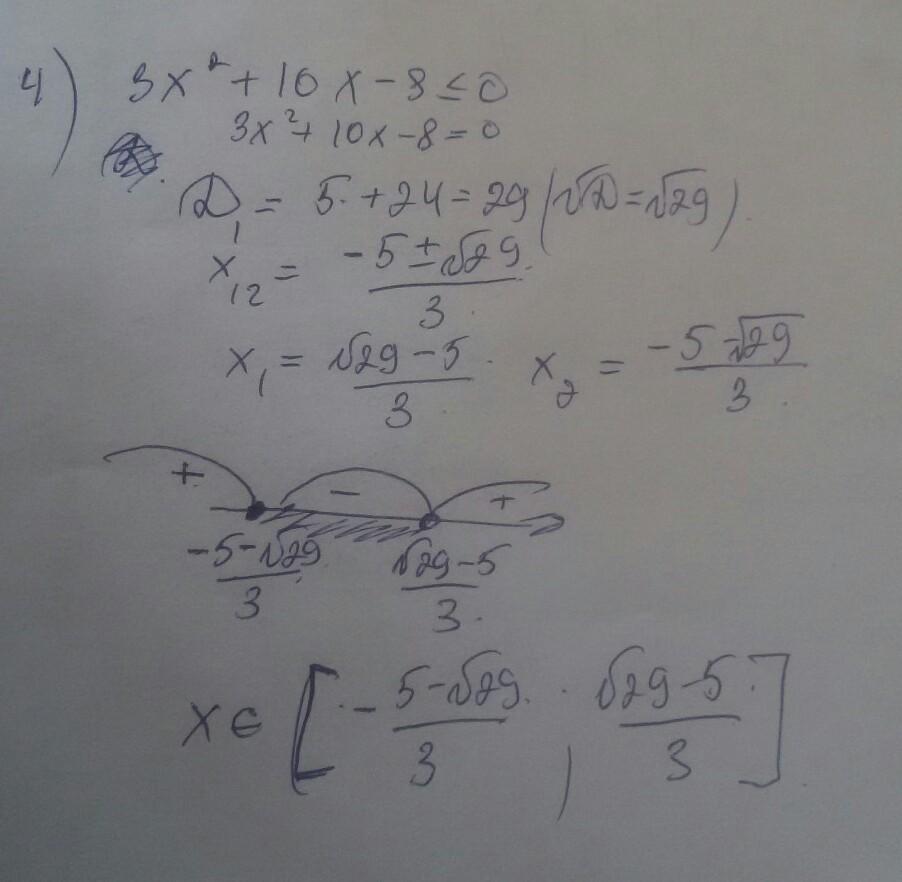 4) 3x² + 10x - 8 ≤ 0
3x² + 10x - 8 = 0
D₁ = 5 + 24 = 29 (√D = √29).
x₁₂ = (-5 ± √29)/3
x₁ = (√29 - 5)/3 x₂ = (-5 - √29)/3
+ - +
(-5 - √29)/3 (√29 - 5)/3
x ∈ [-(5 - √29)/3, (√29 - 5)/3]